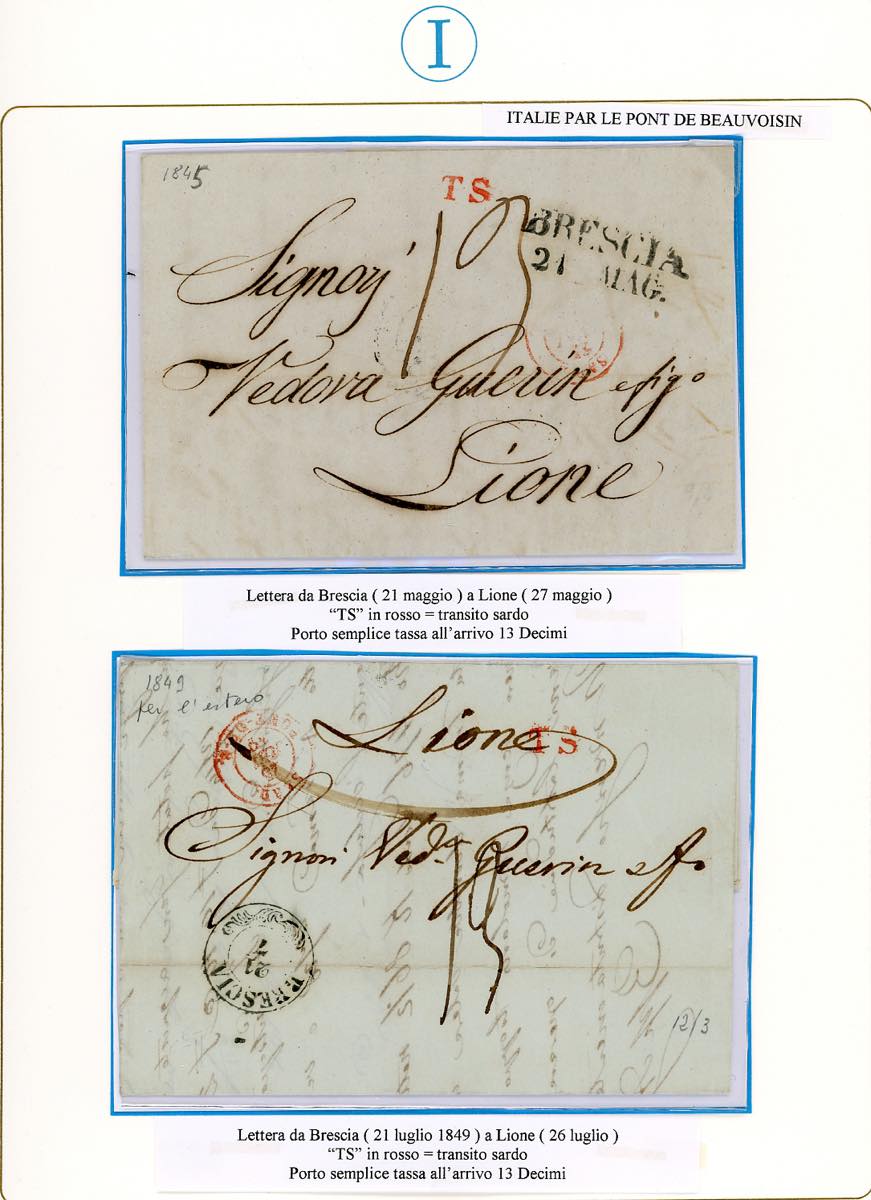 I
ITALIE PAR LE PONT DE BEAUVOISIN
1845
TS
13
BRESCIA
21 MAG.
Signori
Vedova Guerin e figo
Lione
Lettera da Brescia ( 21 maggio ) a Lione ( 27 maggio )
“TS” in rosso = transito sardo
Porto semplice tassa all’arrivo 13 Decimi
1849
per l'estero
Lione
TS
Signori Veda Guerin e fo
13
21
7
BRESCIA
12/3
Lettera da Brescia ( 21 luglio 1849 ) a Lione ( 26 luglio )
“TS” in rosso = transito sardo
Porto semplice tassa all’arrivo 13 Decimi